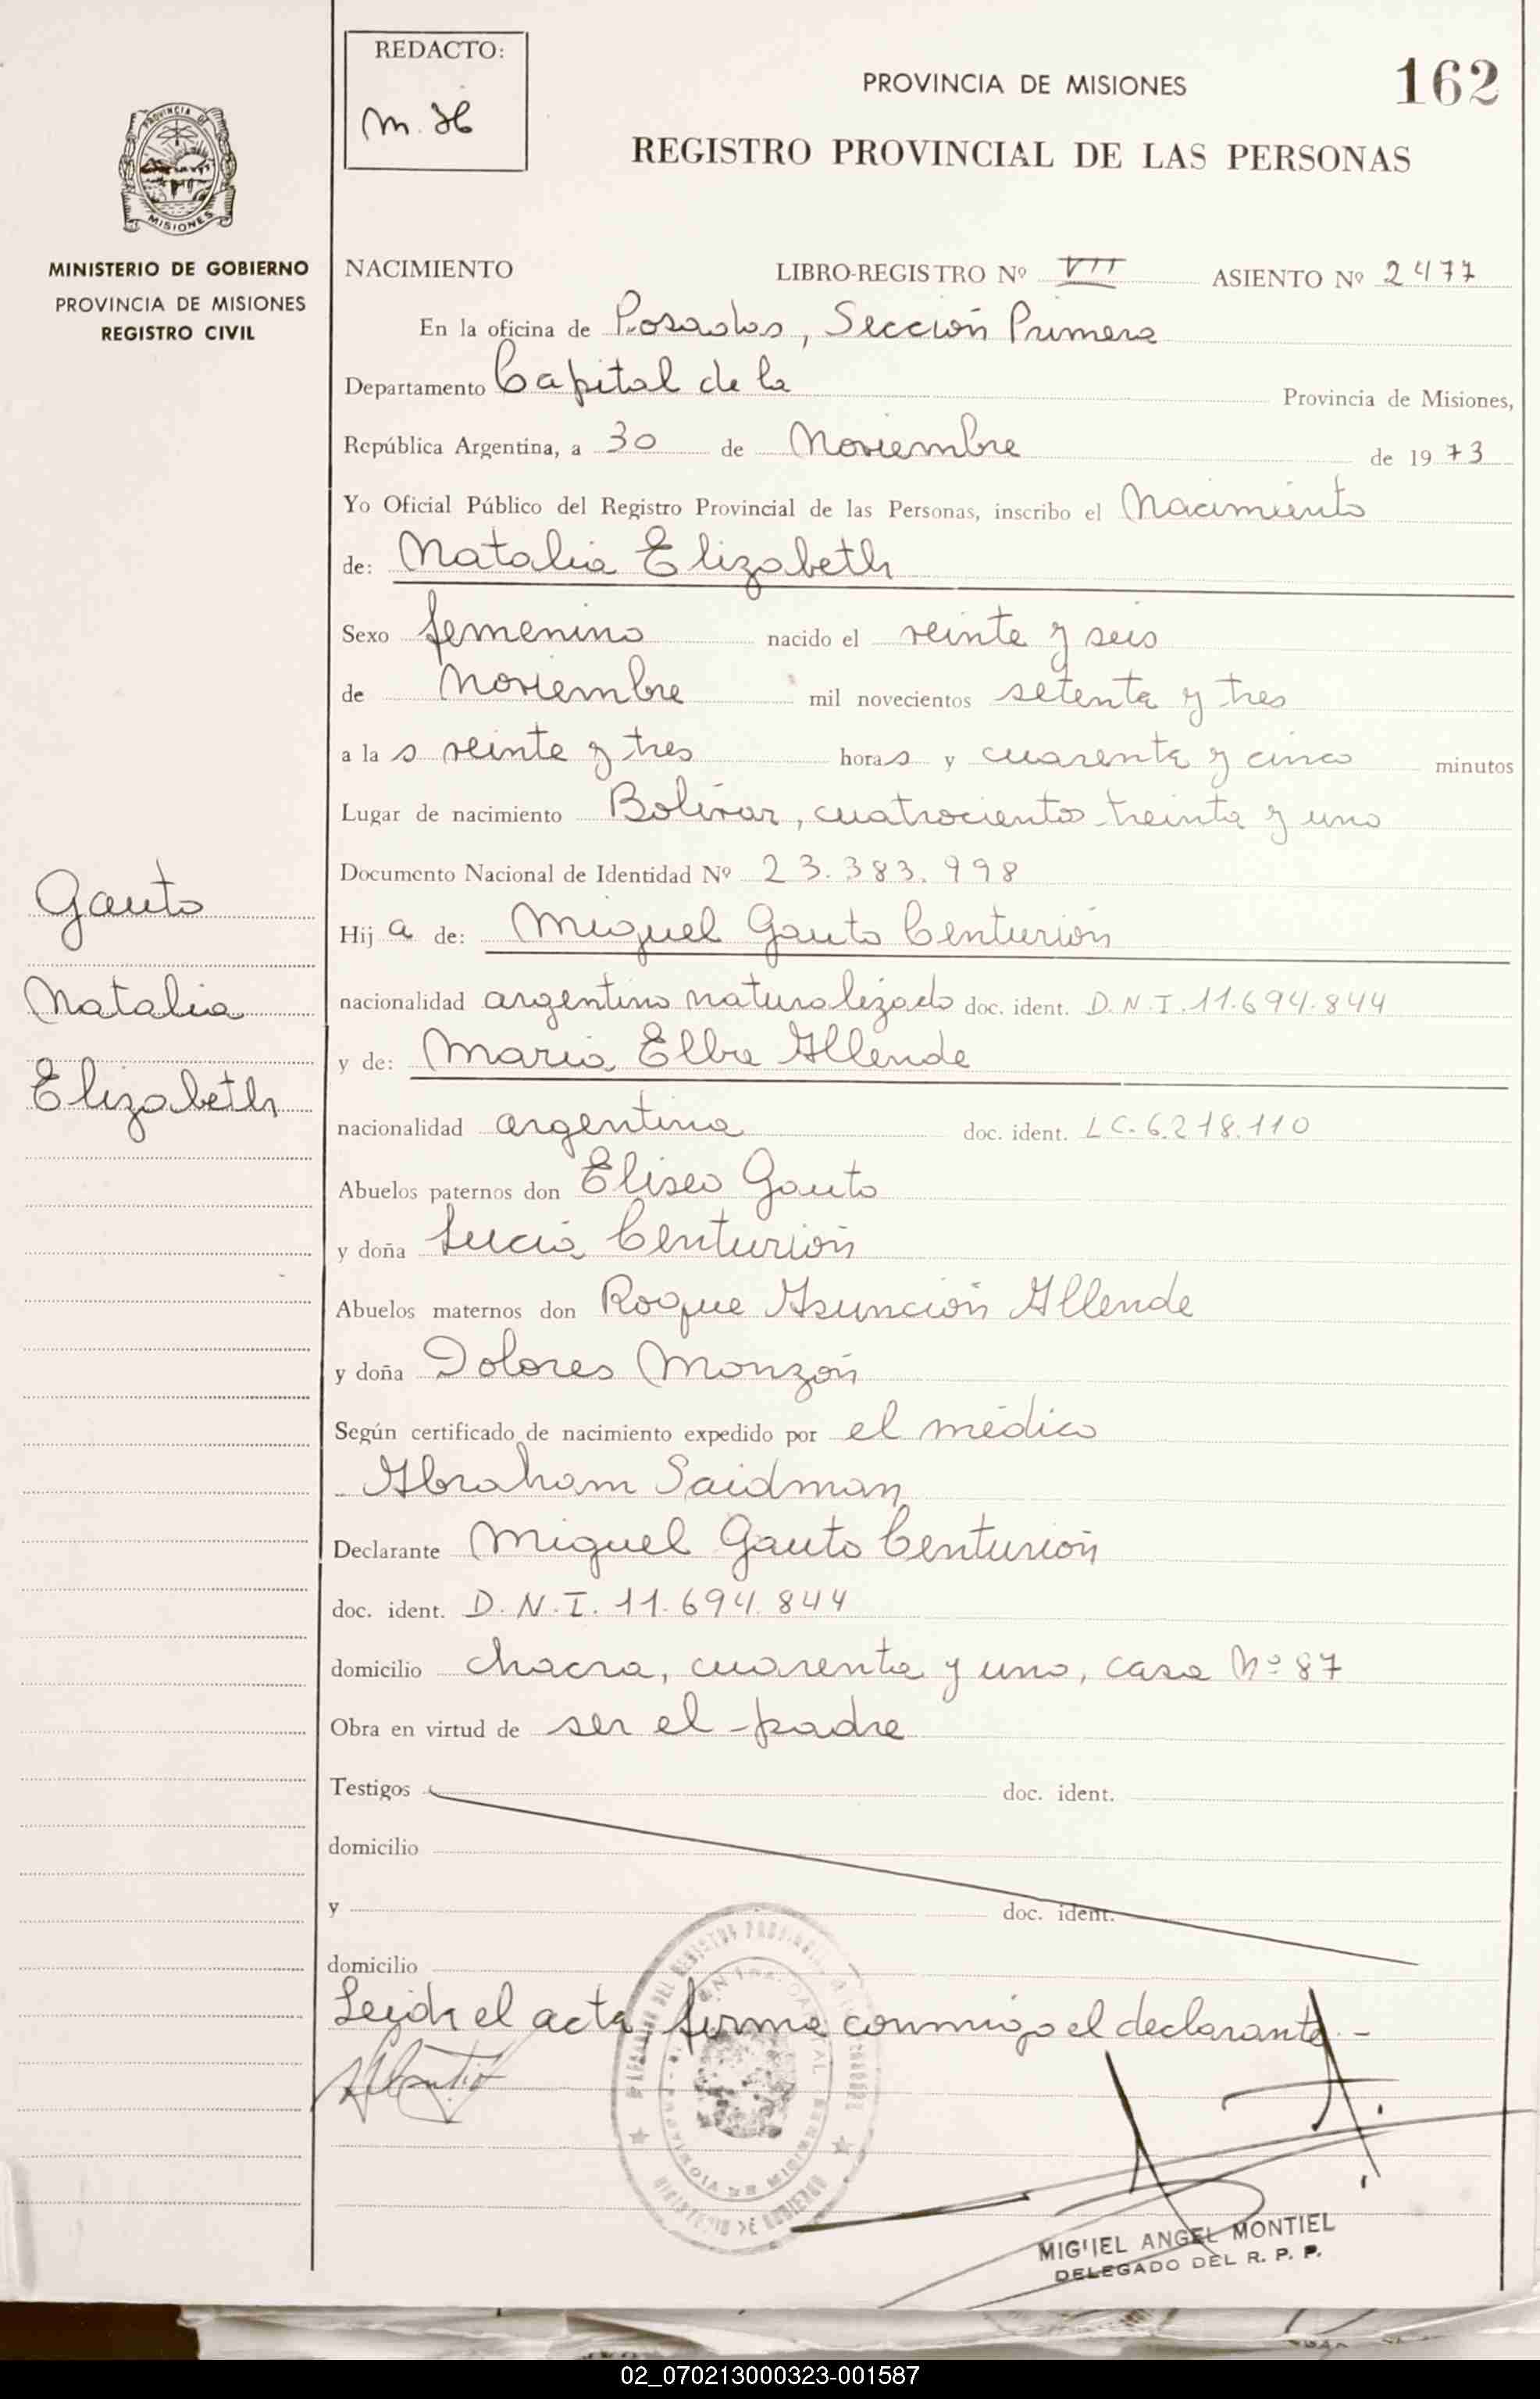 REDACTO:
M. H
PROVINCIA DE MISIONES
162
REGISTRO PROVINCIAL DE LAS PERSONAS
PROVINCIA DE
MISIONES
MINISTERIO DE GOBIERNO
PROVINCIA DE MISIONES
REGISTRO CIVIL
NACIMIENTO LIBRO-REGISTRO Nº VII ASIENTO Nº 2477
En la oficina de Posadas, Sección Primera
Departamento Capital de la Provincia de Misiones,
República Argentina, a 30 de Noviembre de 1973
Yo Oficial Público del Registro Provincial de las Personas, inscribo el Nacimiento
de: Natalia Elizabeth
Sexo femenino nacido el veinte y seis
de Noviembre mil novecientos setenta y tres
a las veinte y tres horas y cuarenta y cinco minutos
Lugar de nacimiento Bolívar, cuatrocientos treinta y uno
Documento Nacional de Identidad Nº 23.383.998
Gauto
Natalia
Elizabeth
Hija de: Miguel Gauto Centurión
nacionalidad argentino naturalizado doc. ident. D.N.I. 11.694.844
y de: María Elba Allende
nacionalidad argentina doc. ident. L.C. 6.218.110
Abuelos paternos don Eliseo Gauto
y doña Lucía Centurión
Abuelos maternos don Roque Asunción Allende
y doña Dolores Monzón
Según certificado de nacimiento expedido por el médico
Abraham Saidman
Declarante Miguel Gauto Centurión
doc. ident. D.N.I. 11.694.844
domicilio chacra, cuarenta y uno, casa Nº 87
Obra en virtud de ser el padre
Testigos doc. ident.
domicilio
y doc. ident.
domicilio
Leída el acta, firma conmigo el declarante.-
MINISTERIO DE GOBIERNO
MIGUEL ANGEL MONTIEL
DELEGADO DEL R. P. P.
02_070213000323-001587